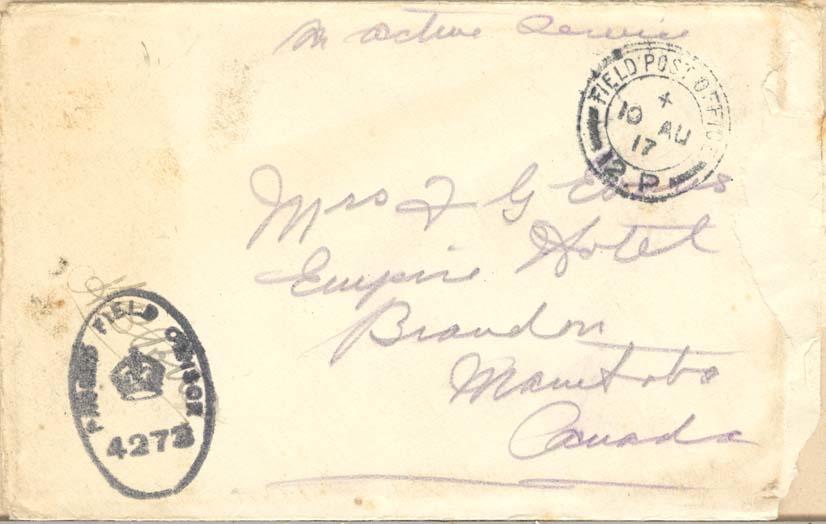 On Active Service
FIELD POST OFFICE
10 AU
17
12.P
Mrs F G
Empire Hotel
Brandon
Manitoba
Canada
PASSED FIELD CENSOR
4273